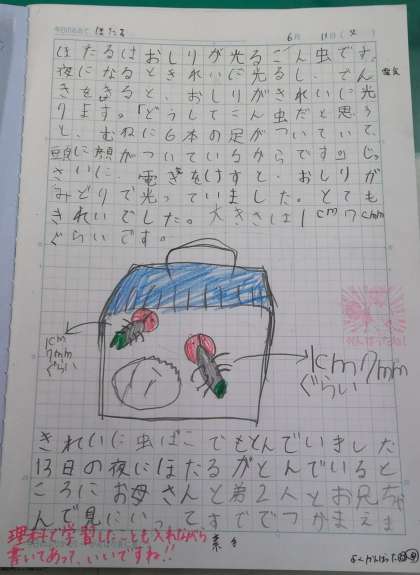 今日のめあて ほたる 6月 11日
ほたるはおしりが光るこん虫です。
夜になるときれいに光るし、でん
きをきると、おしりがきれいに光
ります。「どうしてこん虫だと思う
と、むねに6本の足がついていて、
頭に顔がついているからです。じっ
さいに、電きをけすと、おしりが
みどりで光っていました。とても
きれいでした。大きさは1cm7mm
ぐらいです。
1cm
7mm
ぐらい
1cm7mm
ぐらい
きれいに虫ばこでもとんでいました
13日の夜にほたるがとんでいると
ころにお母さんと弟2人とお兄ちゃ
んで見にいってすででつかまえま
理科で学習したことも入れながら
書いてあって、いいですね!!